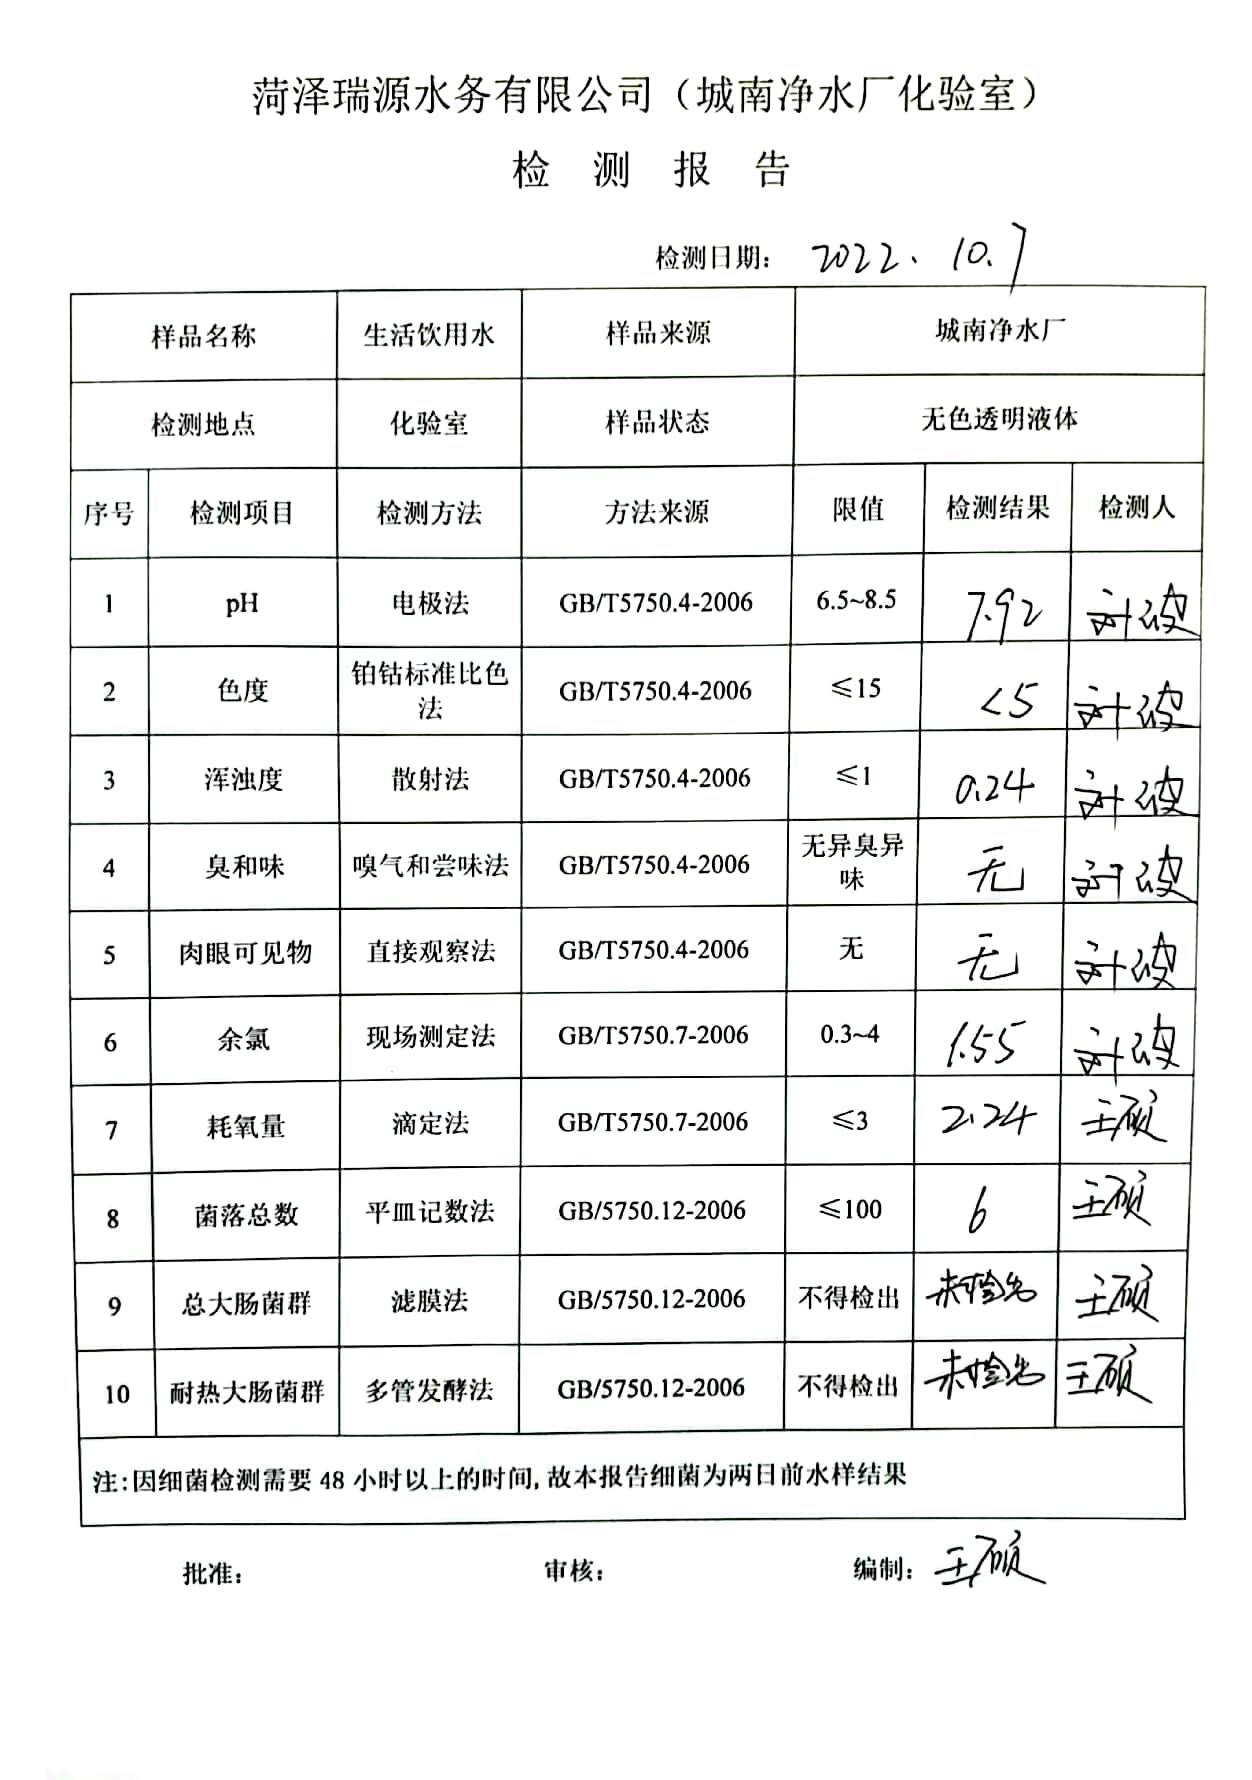 菏泽瑞源水务有限公司（城南净水厂化验室）
检 测 报 告
检测日期： 2022.10.7
样品名称 生活饮用水 样品来源 城南净水厂
检测地点 化验室 样品状态 无色透明液体
序号 检测项目 检测方法 方法来源 限值 检测结果 检测人
1 pH 电极法 GB/T5750.4-2006 6.5~8.5 7.92 刘波
2 色度 铂钴标准比色法 GB/T5750.4-2006 ≤15 <5 刘波
3 浑浊度 散射法 GB/T5750.4-2006 ≤1 0.24 刘波
4 臭和味 嗅气和尝味法 GB/T5750.4-2006 无异臭异味 无 刘波
5 肉眼可见物 直接观察法 GB/T5750.4-2006 无 无 刘波
6 余氯 现场测定法 GB/T5750.7-2006 0.3~4 1.55 刘波
7 耗氧量 滴定法 GB/T5750.7-2006 ≤3 2.24 王硕
8 菌落总数 平皿记数法 GB/5750.12-2006 ≤100 6 王硕
9 总大肠菌群 滤膜法 GB/5750.12-2006 不得检出 未检出 王硕
10 耐热大肠菌群 多管发酵法 GB/5750.12-2006 不得检出 未检出 王硕
注:因细菌检测需要 48 小时以上的时间,故本报告细菌为两日前水样结果
批准： 审核： 编制：王硕